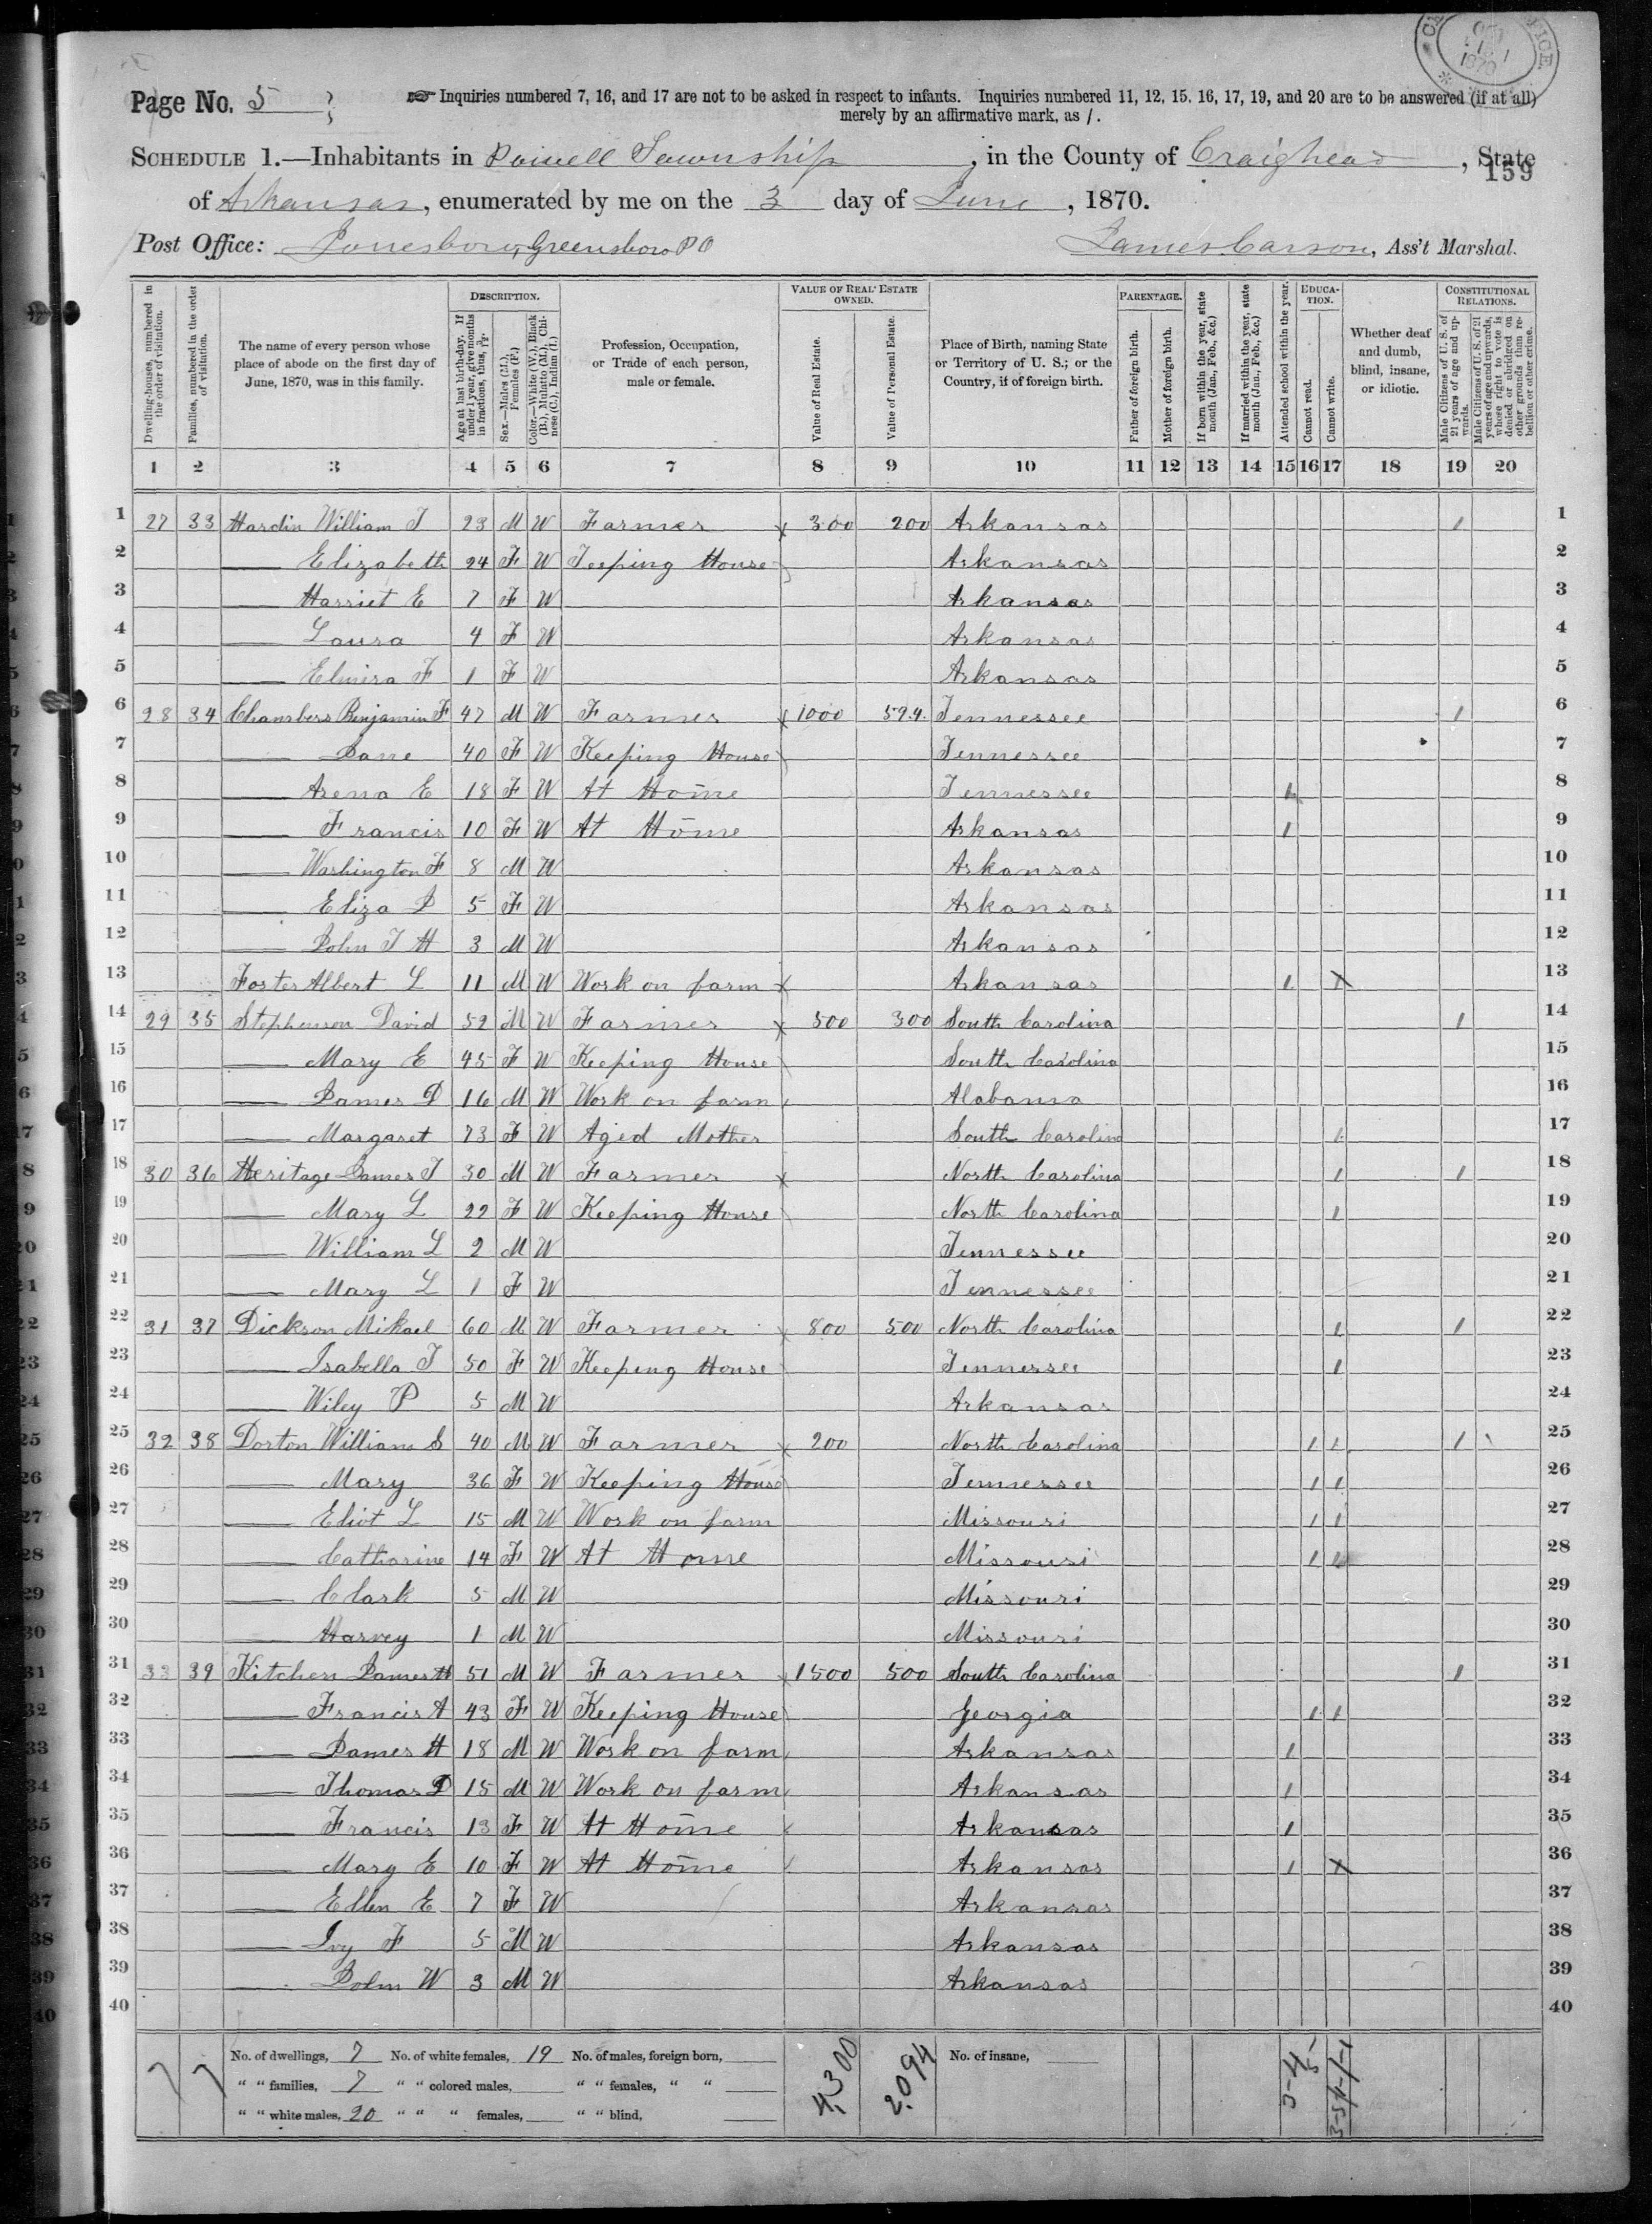 Page No. 5
Inquiries numbered 7, 16, and 17 are not to be asked in respect to infants. Inquiries numbered 11, 12, 15, 16, 17, 19, and 20 are to be answered (if at all)
merely by an affirmative mark, as /.
SCHEDULE 1.—Inhabitants in Powell Township, in the County of Craighead, State
159
of Arkansas, enumerated by me on the 3 day of June, 1870.
Post Office: Jonesboro, Greensboro P O James Carson, Ass't Marshal.
Dwelling-houses, numbered in the order of visitation.
Families, numbered in the order of visitation.
The name of every person whose place of abode on the first day of June, 1870, was in this family.
DESCRIPTION.
Age at last birth-day. If under 1 year, give months in fractions, thus, 3/12.
Sex.—Males (M.), Females (F.)
Color.—White (W.), Black (B.), Mulatto (M.), Chinese (C.), Indian (I.)
Profession, Occupation, or Trade of each person, male or female.
VALUE OF REAL ESTATE OWNED.
Value of Real Estate.
Value of Personal Estate.
Place of Birth, naming State or Territory of U. S.; or the Country, if of foreign birth.
PARENTAGE.
Father of foreign birth.
Mother of foreign birth.
If born within the year, state month (Jan., Feb., &c.)
If married within the year, state month (Jan., Feb., &c.)
Attended school within the year.
EDUCATION.
Cannot read.
Cannot write.
Whether deaf and dumb, blind, insane, or idiotic.
CONSTITUTIONAL RELATIONS.
Male Citizens of U. S. of 21 years of age and upwards.
Male Citizens of U. S. of 21 years of age and upwards, whose right to vote is denied or abridged on other grounds than rebellion or other crime.
1 2 3 4 5 6 7 8 9 10 11 12 13 14 15 16 17 18 19 20
1 27 33 Hardin William J 23 M W Farmer x 300 200 Arkansas / 1
2 — Elizabeth 24 F W Keeping House Arkansas 2
3 — Harriet E 7 F W Arkansas 3
4 — Laura 4 F W Arkansas 4
5 — Elmira F 1 F W Arkansas 5
6 28 34 Chambers Benjamin F 47 M W Farmer x 1000 594 Tennessee / 6
7 — Jane 40 F W Keeping House Tennessee 7
8 — Arena E 18 F W At Home Tennessee / 8
9 — Francis 10 F W At Home Arkansas / 9
10 — Washington F 8 M W Arkansas 10
11 — Eliza J 5 F W Arkansas 11
12 — John T H 3 M W Arkansas 12
13 Foster Albert L 11 M W Work on farm x Arkansas / x 13
14 29 35 Stephenson David 52 M W Farmer x 500 300 South Carolina / 14
15 — Mary E 45 F W Keeping House South Carolina 15
16 — James D 16 M W Work on farm Alabama 16
17 — Margaret 73 F W Aged Mother South Carolina / 17
18 30 36 Heritage James T 30 M W Farmer x North Carolina / / 18
19 — Mary L 22 F W Keeping House North Carolina / 19
20 — William L 2 M W Tennessee 20
21 — Mary L 1 F W Tennessee 21
22 31 37 Dickson Mikael 60 M W Farmer x 800 500 North Carolina / / 22
23 — Isabella J 50 F W Keeping House Tennessee / 23
24 — Wiley P 5 M W Arkansas 24
25 32 38 Dorton William S 40 M W Farmer x 200 North Carolina / / / 25
26 — Mary 36 F W Keeping House Tennessee / / 26
27 — Eliot L 15 M W Work on farm Missouri / / 27
28 — Catharine 14 F W At Home Missouri / / 28
29 — Clark 5 M W Missouri 29
30 — Harvey 1 M W Missouri 30
31 33 39 Kitchen James H 51 M W Farmer x 1500 500 South Carolina / 31
32 — Francis A 43 F W Keeping House Georgia / / 32
33 — James H 18 M W Work on farm Arkansas / 33
34 — Thomas D 15 M W Work on farm Arkansas / 34
35 — Francis 13 F W At Home Arkansas / 35
36 — Mary E 10 F W At Home Arkansas / x 36
37 — Ellen E 7 F W Arkansas 37
38 — Ivy F 5 M W Arkansas 38
39 — John W 3 M W Arkansas 39
40 40
7 7
No. of dwellings, 7 No. of white females, 19 No. of males, foreign born, 4,300 2.094 No. of insane,
" " families, 7 " " colored males, " " females, " "
" " white males, 20 " " " females, " " blind,